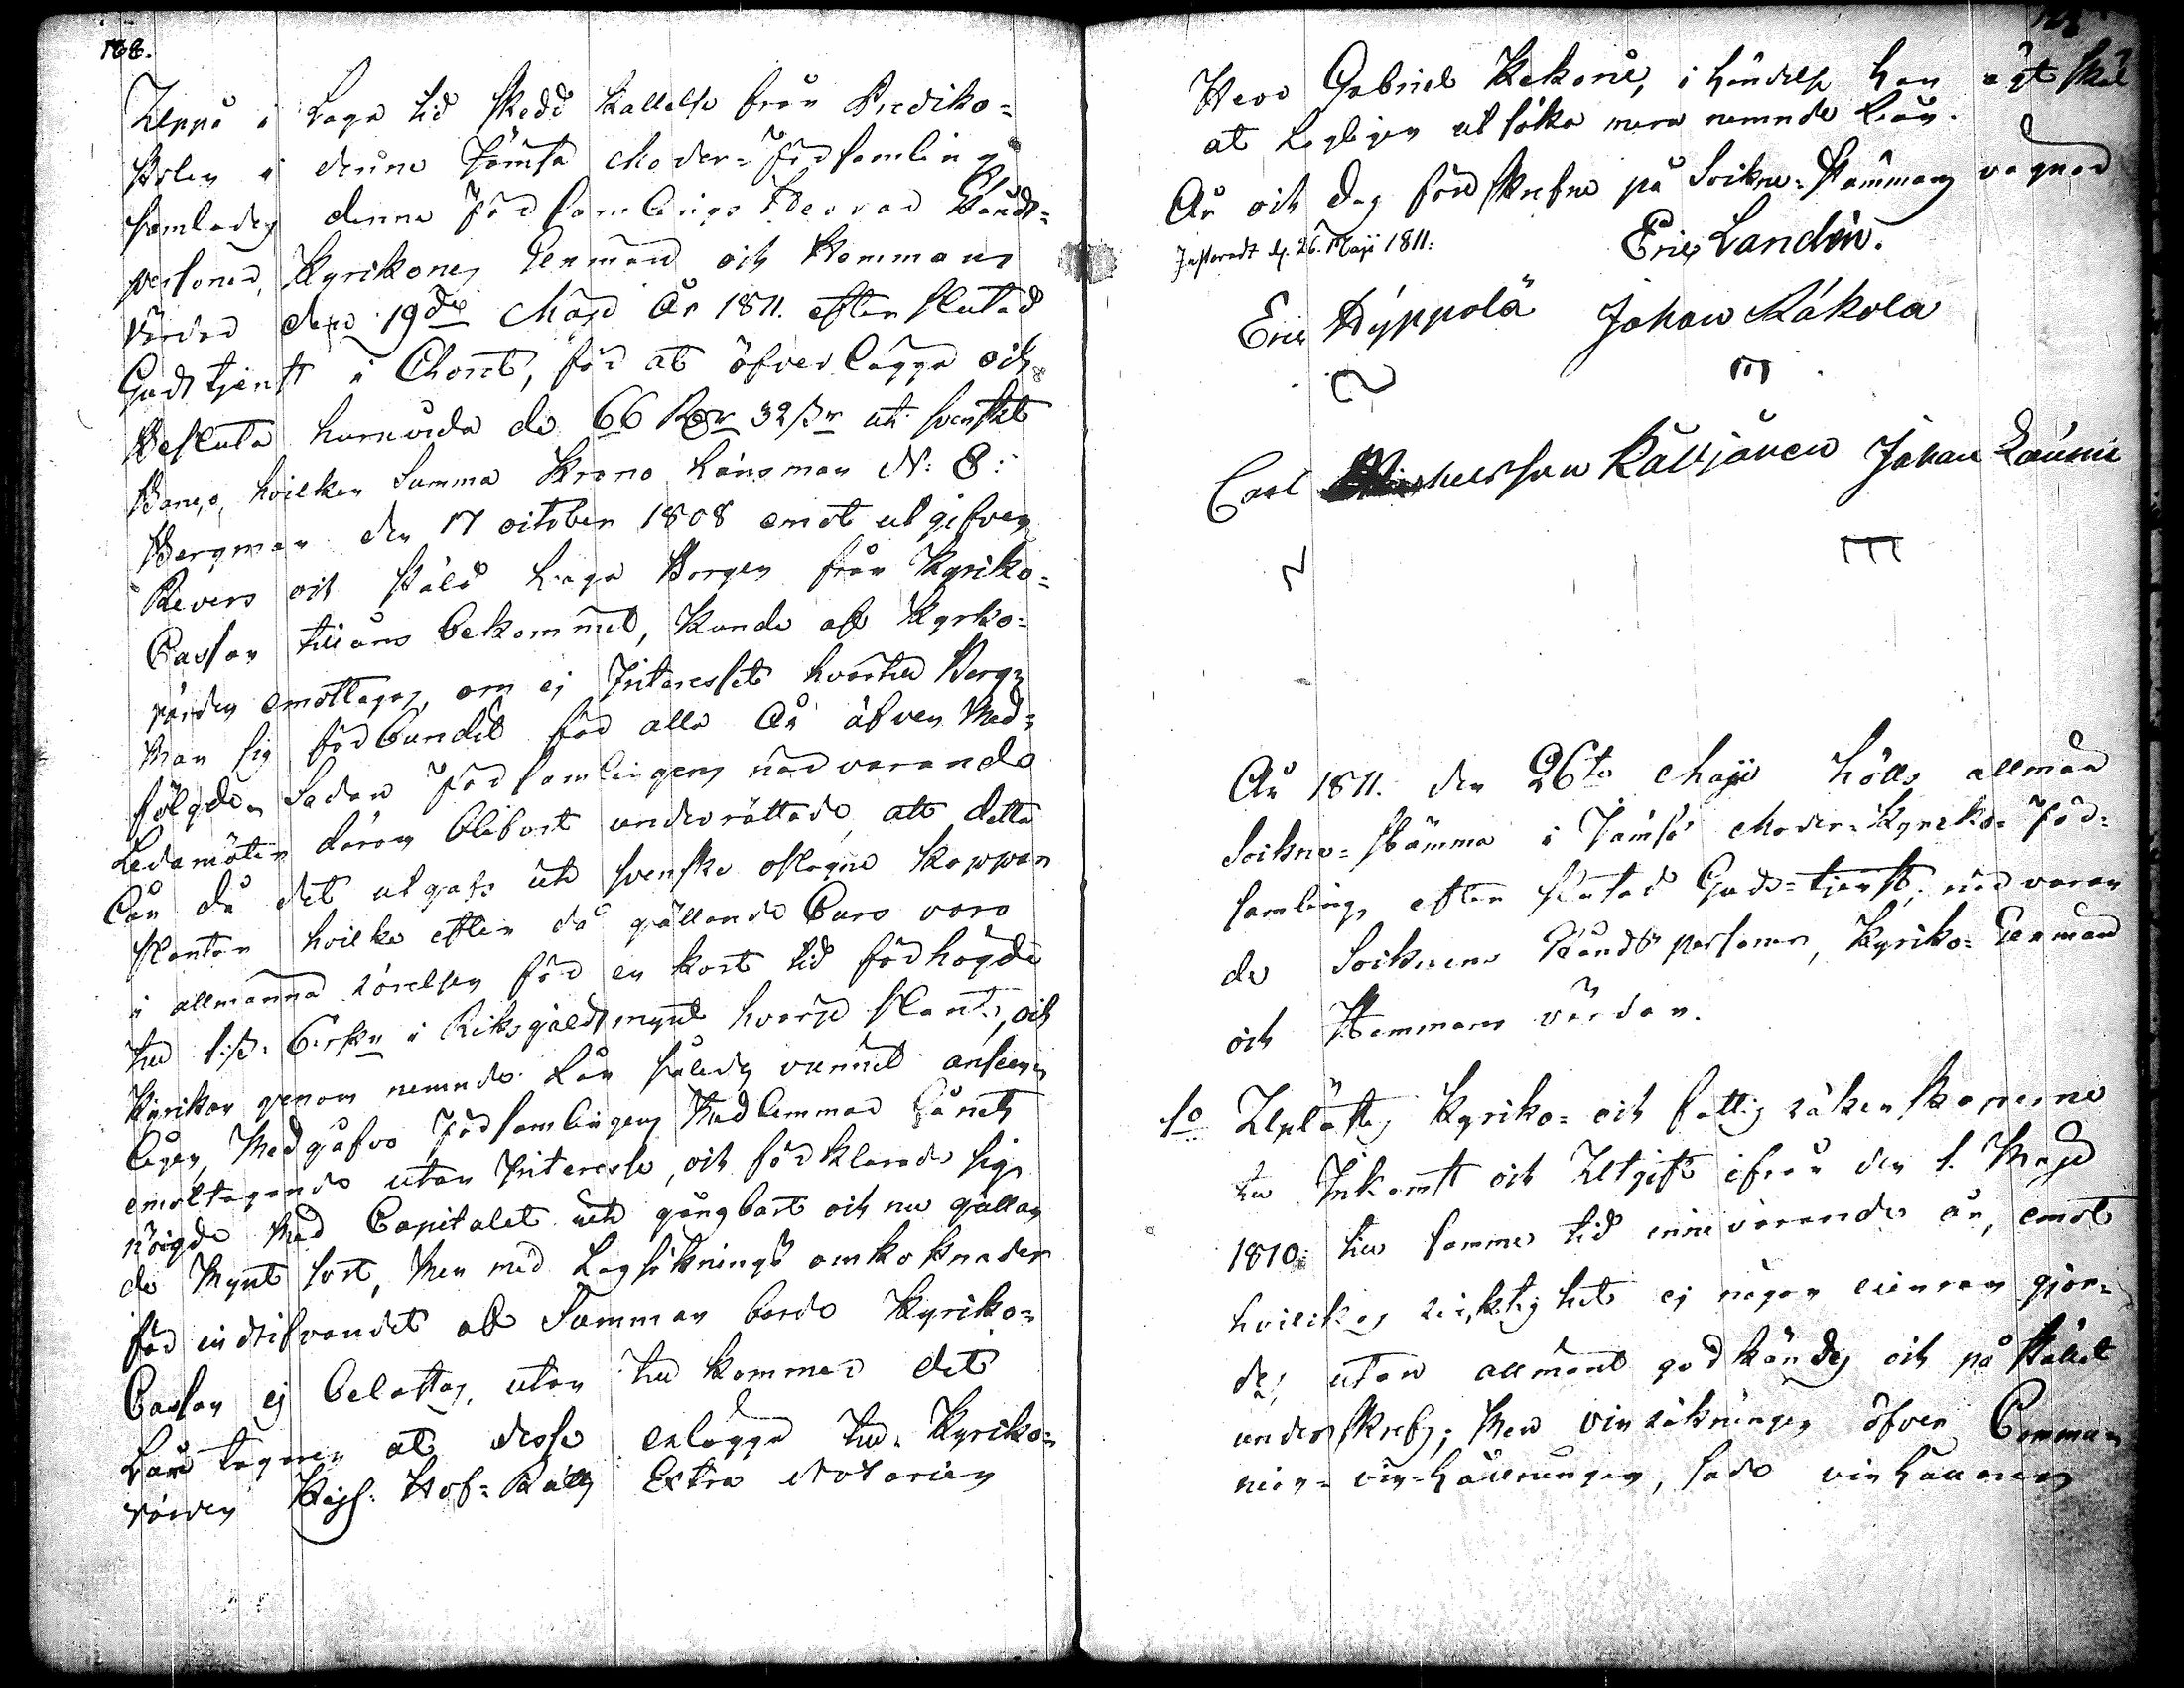 168.
Uppå i Laga tid skedd Kallelse från Prediko-
stolen i denne Jämsä Moder-Församling
samlades denne Församlings Herrar Stånds-
personer, Kyrikones Sexmän och Hemmans
värdar den 19de Maji År 1811. efter slutad
Gudstjenst i Choret, för at öfverlägga och
Besluta huruvida de 66 Rdr 32 sr uti svenskt
Banco, hvilken Summa Krono Länsman N: E:
Bergman den 17 october 1808 emot utgifven
Revers och stäld Laga Borgen från Kyriko-
Cassan till Låns bekommit, Kunde af Kyrko-
värden emottagas, om ej Interesset hvartil Berg-
man sig förbundit för alla År äfven Med-
följde. Sedan Församlingens närvarande
Ledamöter härom blifvit underrättade, att detta
Lån då det utgafs uti svenske oslagne Koppar
slantar hvilka efter då gällande Curs voro
i allmänna rörelsen för en kort tid förhögde
till 1 s: 6 rst i Riksgälds mynt hvarje slant, och
Kyrikan genom nemnde Lån således vunnit ansen-
ligen, Medgåfvo Församlingens Medlemmar Lånets
emottagande utan Interesse, och förklarade sig
nöigde Med Capitalet uti gångbart och nu gällan
de Mynt sort, Men med Lagsöknings omkostnader
för indrifvandet af Summan borde Kyriko-
Cassan ej belastas, utan till kommer det
Lånetagaren at desse erlägga till Kyriko-
värden Kejs: Hof-Rätts Extra Notarien
Herr Gabriel Kekoni, i händelse han ägt skäl
at Lagligen utsöka mera nemnde Lån.
År och dag föreskrefne på Sockne-Stämmans vägnar
Eric Landén.
Justeradt d. 26. Maji 1811:
Eric Hyppölä Johan Räkola
Carl Kalljanen Johan Launis
År 1811. den 26te Maji hölls allmän
Sockne-stämma i Jämsä Moder-Kyrcko-För-
samling, efter slutad Guds-tjenst, närvaran
de Socknens Ståndspersoner, Kyriko-Sexmän
och Hemmans värdar.
1o Uplästes Kyriko- och fattig räkenskaperne
till Inkomst och Utgift ifrån den 1. Maji
1810: till samme tid innevarande år, emot
hvilckas ricktighet ej någon Linran gjor-
des, utan allmänt godkändes och på stället
underskrefs; Men vinräkningen öfver Commu-
nion-vin-hållningen, sade vinhållaren